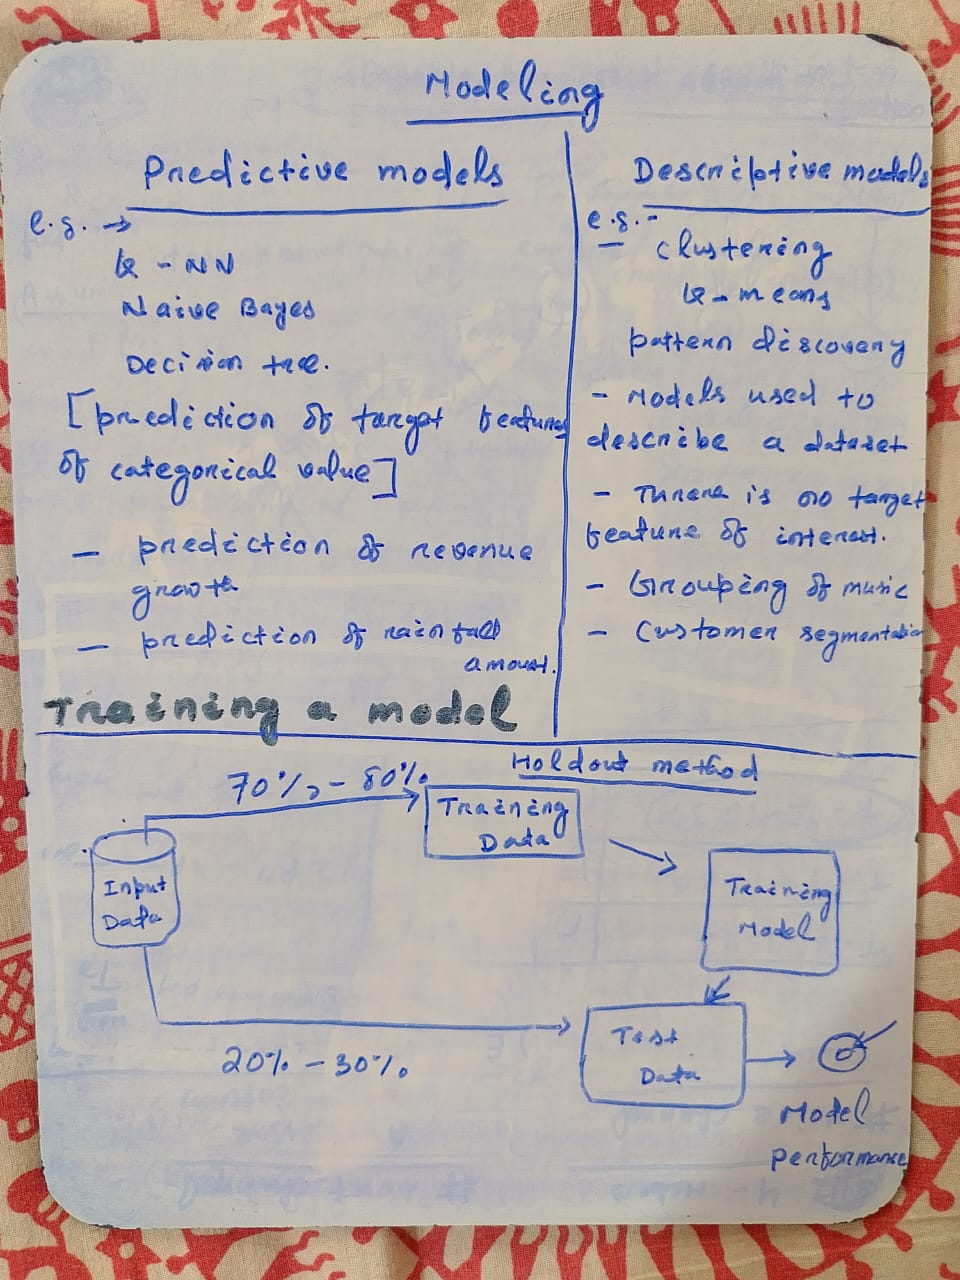 Modeling
Predictive models
e.g. →
k - NN
Naive Bayes
Decision tree.
[prediction of target features
of categorical value]
— prediction of revenue
growth
— prediction of rainfall
amount.
Descriptive models
e.g.-
Clustering
k-means
pattern discovery
- Models used to
describe a dataset
- There is no target
feature of interest.
- Grouping of music
- Customer segmentation
Training a model
Holdout method
70% - 80%
Training
Data
Input
Data
Training
Model
20% - 30%
Test
Data
Model
performanse